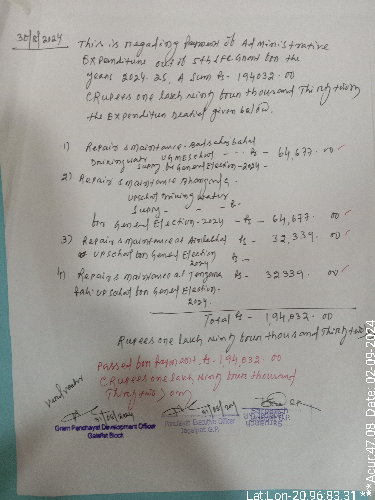 30/8/2024 This is regarding payment of Administrative
Expenditure out of 5th SFC Grant for the
years 2024-25, A Sum Rs- 194032.00
(Rupees one lakh ninty four thousand Thirty two)
the Expenditure Deatiel given below.
1) Repair & maintance - Badsahi bahal
Drinking water UGMESchool - Rs - 64,677.00
Supply for General Election-2024-
2) Repair & maintance
UPSchool Drinking Watur
Supply -
for General Election-2024 -Rs- 64,677.00
3) Repair & maintance at Rs- 32,339.00
UPSchool for General Election Rs-
2024
4) Repair & maintance at Jengna Rs- 32339.00
UPSchool for General Election-
2024.
Total Rs - 1,94,032.00
Rupees one lakh ninty four thousand Thirty two)
Passed for payment Rs. 1,94,032.00
(Rupees one lakh ninty four thousand
Thirty two) only
31/08/2024
Gram Panchayat Development Officer
Gaisilat Block
Panchayat Executive Officer
G.P.
Lat:Lon-20.96:83.31
***Acur:47.08 Date:02-09-2024